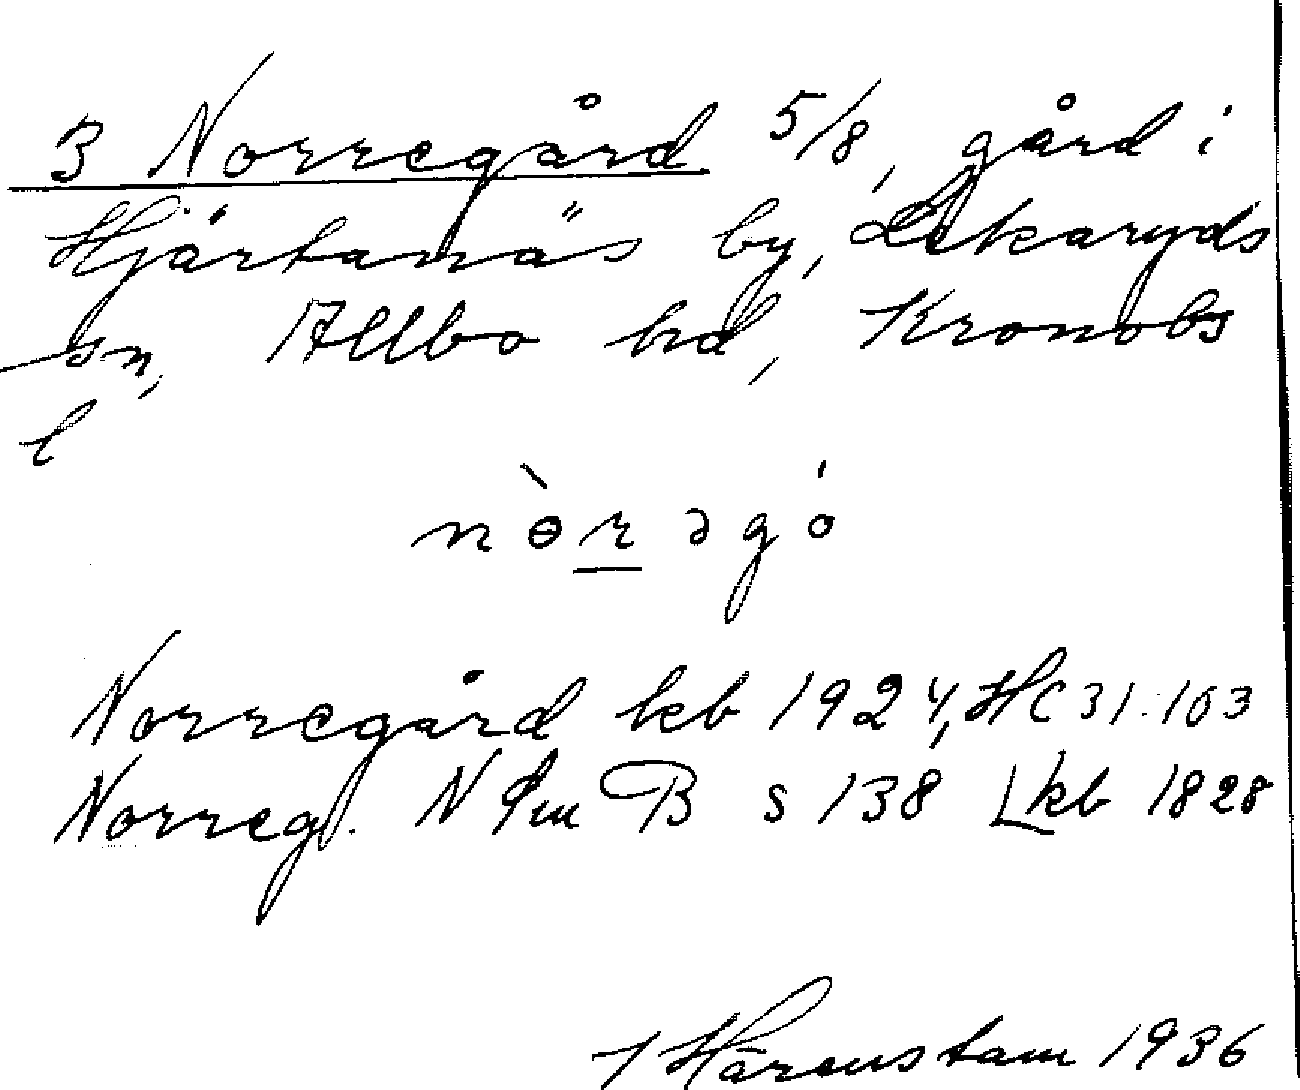 3 Norregård 5/8, gård i
Hjärtanäs by, Lekaryds
sn, Allbo hd, Kronobs
l
nòrəgó
Norregård kb 1924, HC 31:103
Norreg. N B s 138 Lkb 1828
Härenstam 1936